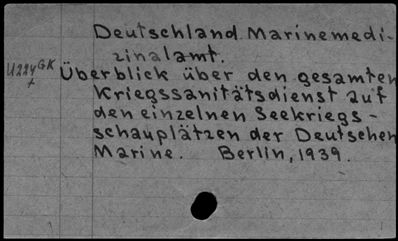 Deutschland. Marinemedi-
zinalamt.
U224GK
+
Überblick über den gesamten
Kriegssanitätsdienst auf
den einzelnen Seekriegs-
schauplätzen der Deutschen
Marine. Berlin, 1939.